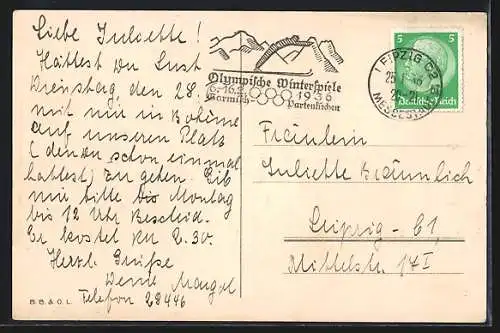 Liebe Juliette!
Hättest Du Lust
Dienstag, den 28.
mit mir in Bohème
auf unseren Platz
(den du schon einmal
hattest) zu gehen. Gib
mir bitte bis Montag
bis 12 Uhr Bescheid.
Er kostet RM 2.30.
Herzl. Grüße
Deine Margot
Telefon 28446
B.B.& O.L.
Olympische Winterspiele
6.-16.2. 1936
Garmisch- Partenkirchen
LEIPZIG C2
MESSESTADT
5 5
Deutsches Reich
Fräulein
Juliette Bräunlich
Leipzig-C1
Mittelstr. 17 I